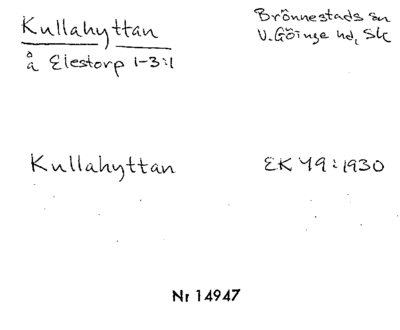 Kullahyttan
å Elestorp 1-3:1
Brönnestads sn
V. Göinge hd, Sk
Kullahyttan
EK 49:1930
Nr 14947